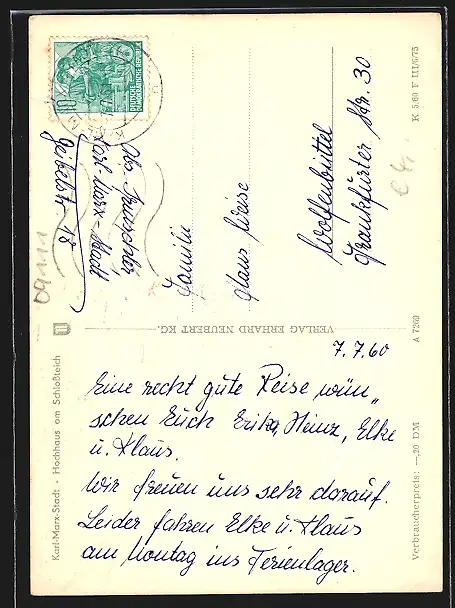 7.7.60
Eine recht gute Reise wün„
schen Euch Erika, Heinz, Elke
u. Klaus.
Wir freuen uns sehr darauf.
Leider fahren Elke u. Klaus
am Montag ins Ferienlager.
Familie
Klaus Weise
Wolfenbüttel
Frankfurter Str. 30
Abs.
Karl-Marx-Stadt
Geibelstr. 18
10
DEUTSCHE
DEMOKRATISCHE REPUBLIK
VERLAG ERHARD NEUBERT KG.
Karl-Marx-Stadt · Hochhaus am Schloßteich
Verbraucherpreis: —,20 DM
A 7269
K 5/60 F III/6/75